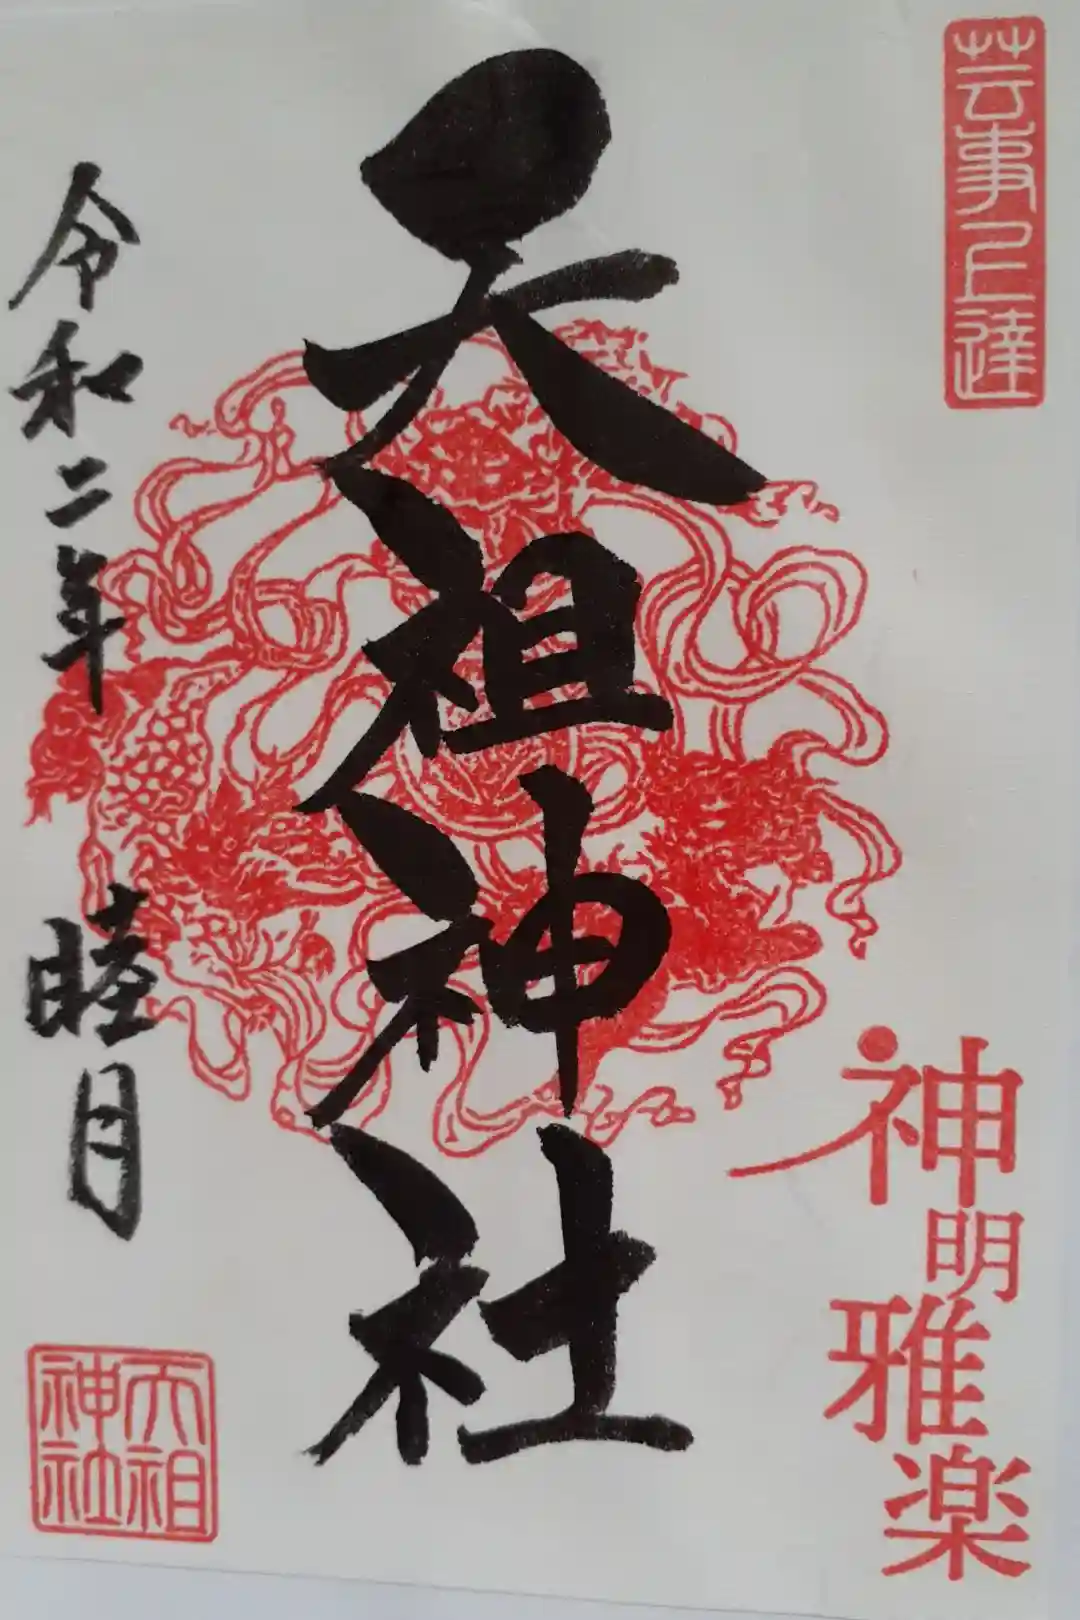 芸事上達
神明雅楽
天祖神社
令和二年 睦月
天祖
神社